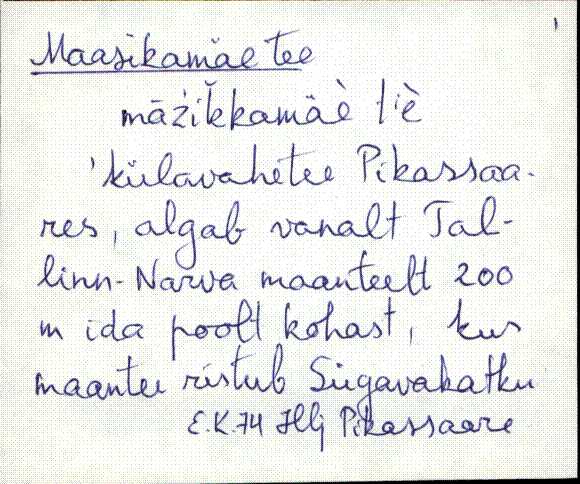 Maasikamäe tee
māžikkamäè t́iè
'külavahetee Pikassaa-
res, algab vanalt Tal-
linn-Narva maanteelt 200
m ida poolt kohast, kus
maantee ristub Sügavakatku
E.K.74 Hlj Pikassaare